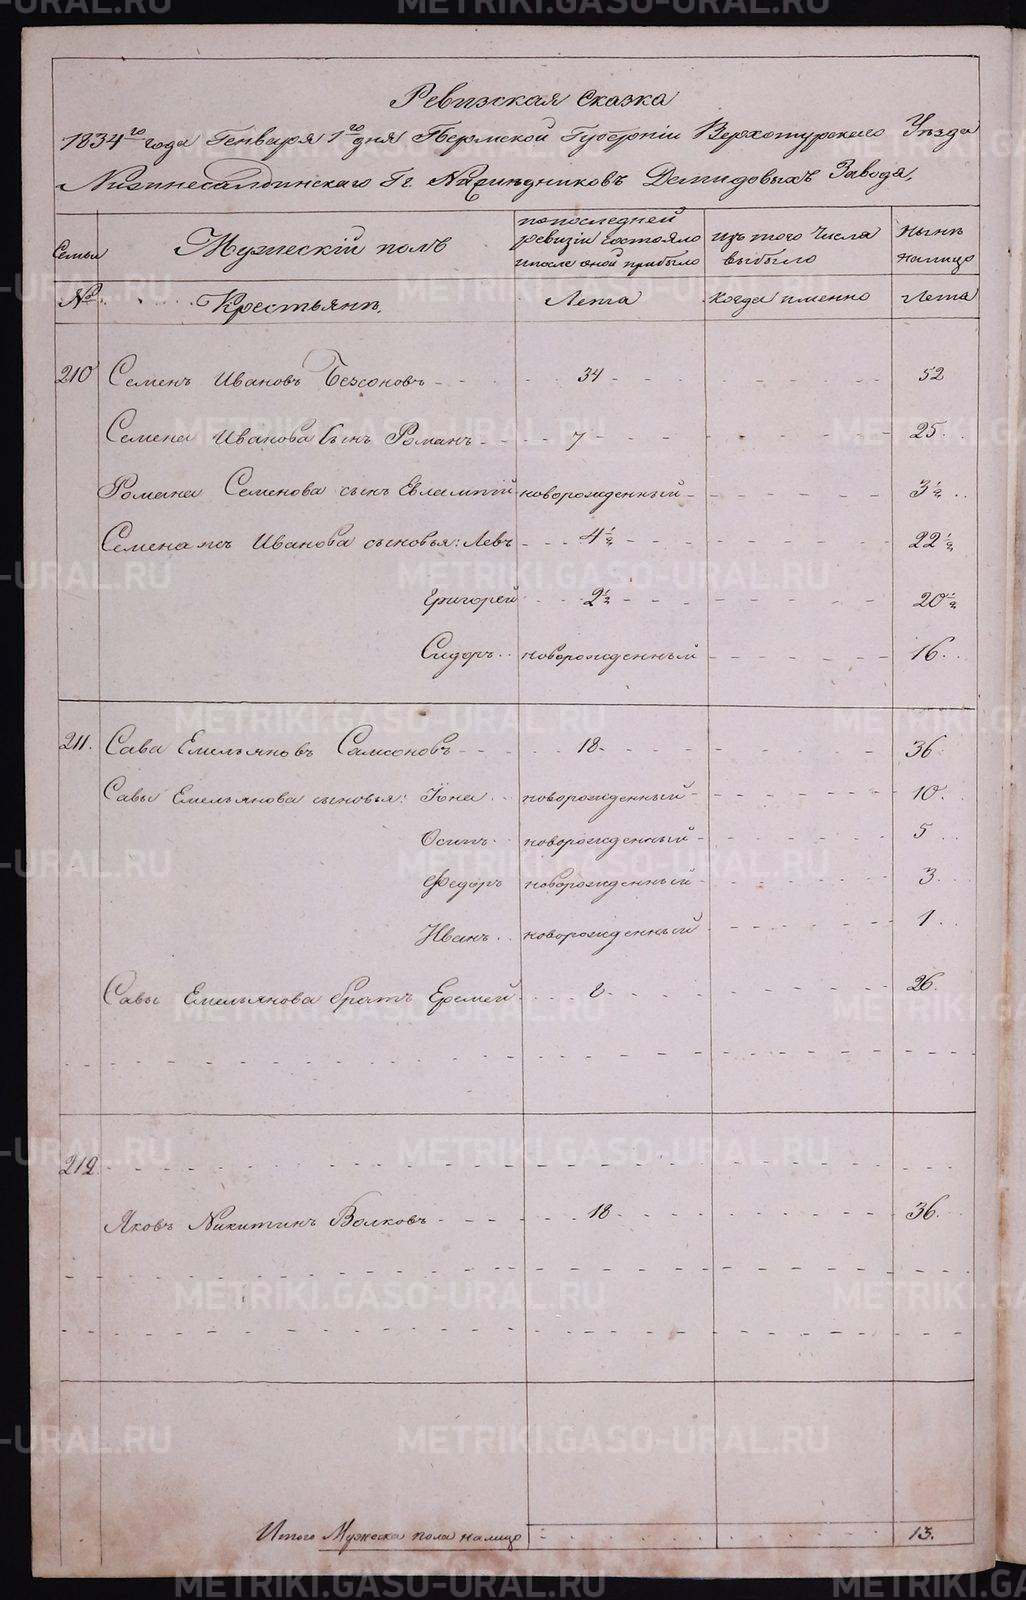 Ревизская Сказка
1834го года Генваря 1го дня Пермской Губерніи Верхотурскаго Уѣзда
Нижнесалдинскаго Гг. Наслѣдниковъ Демидовыхъ Завода,
Семьи Мужескій полъ по последней ревизіи состояло и после оной прибыло изъ того числа выбыло нынѣ налицо
№ Крестьянъ, Лета когда именно Лета
210 Семенъ Ивановъ Безсоновъ 34 52
Семена Иванова сынъ Романъ 7 25
Романа Семенова сынъ Евлампій новорожденный 3 1/2
Семена же Иванова сыновья: Левъ 4 1/2 22 1/2
Григорей 2 1/2 20 1/2
Сидоръ новорожденный 16
211. Сава Емельяновъ Самсоновъ 18 36
Савы Емельянова сыновья: Іона новорожденный 10
Осипъ новорожденный 5
Федоръ новорожденный 3
Иванъ новорожденный 1
Савы Емельянова братъ Еремей 8 26
212
Яковъ Никитинъ Волковъ 18 36
Итого Мужеска пола налицо 13.
METRIKI.GASO-URAL.RU